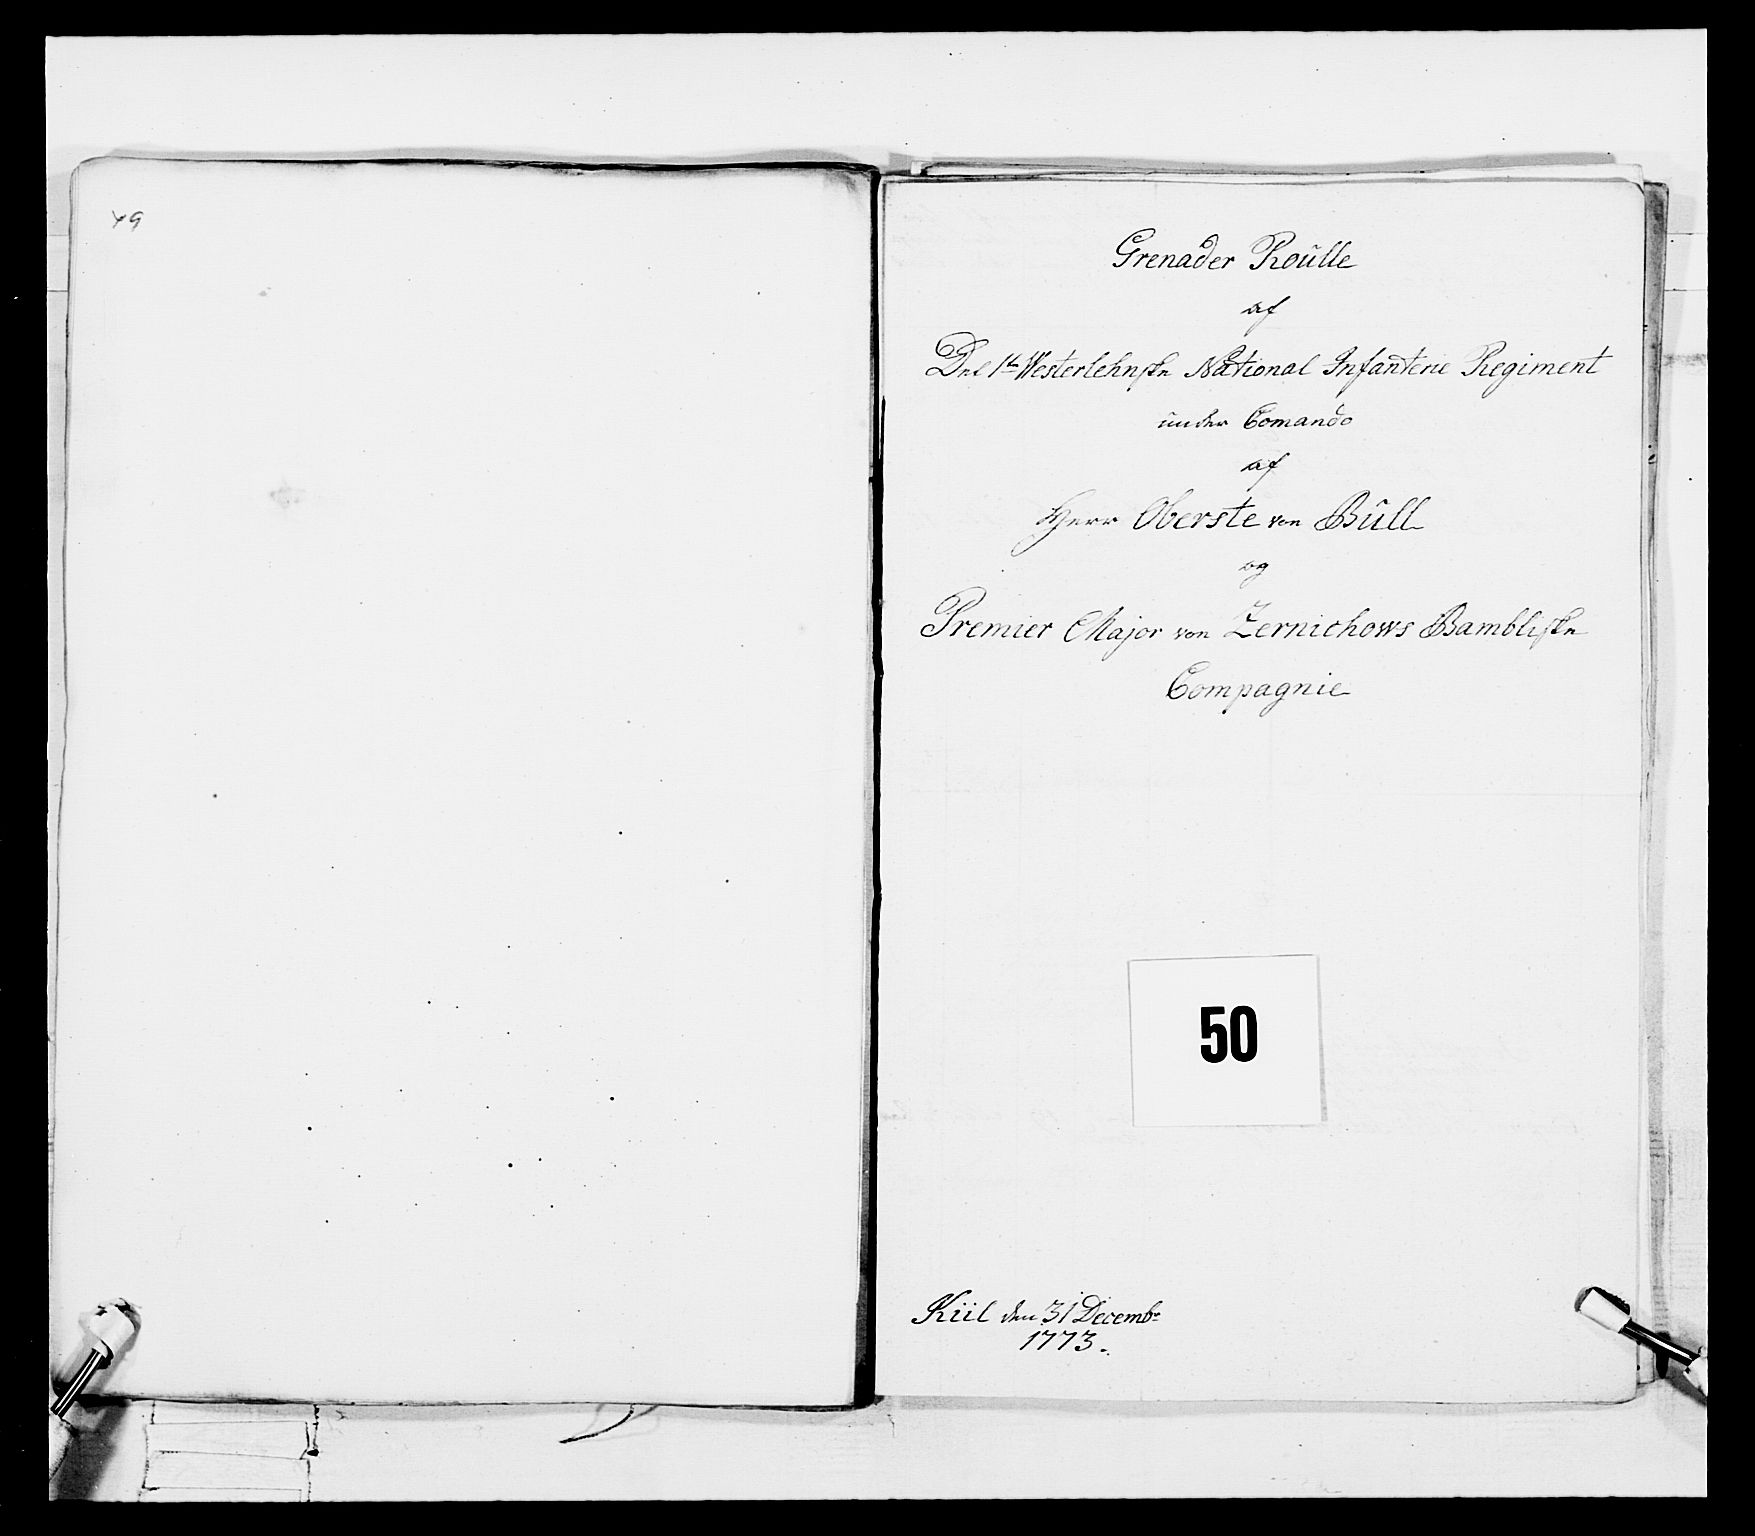 49
Grenader Roülle
af
Det 1te Westerlehnske National Infanterie Regiment
ünder Comando
af
Herr Oberste von Büll
og
Premier Major von Zernichows Bambleske
Compagnie
50
Kiil den 31 Decembr
1773.